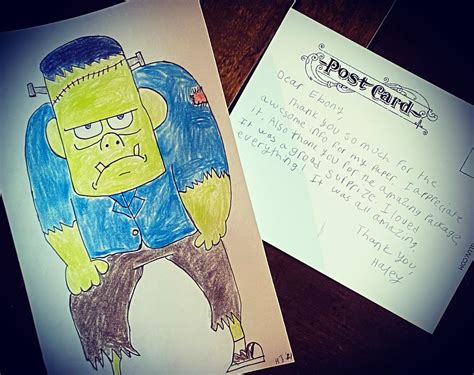 Post Card
Dear Ebony,
Thank you so much for the
awesome info for my paper. I appreciate
it. Also thank you for the amazing package.
It was a great surprize. I loved
everything! It was all amazing.
Thank you,
Haley
H.J. 21